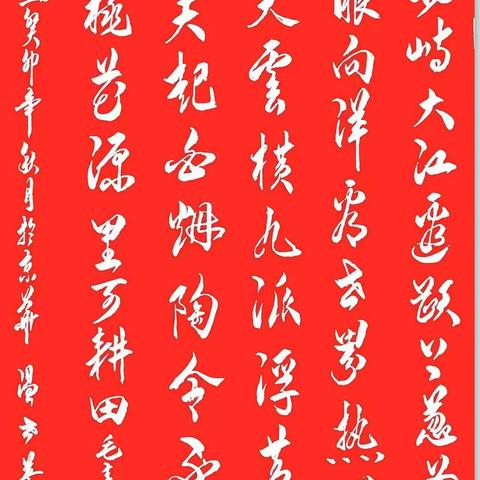 峙大江邊躍上葱
眼向洋看世界热
天雲横九派浮黄
起白烟陶令不
桃花源里可耕田毛主
癸卯年秋月於京華 温